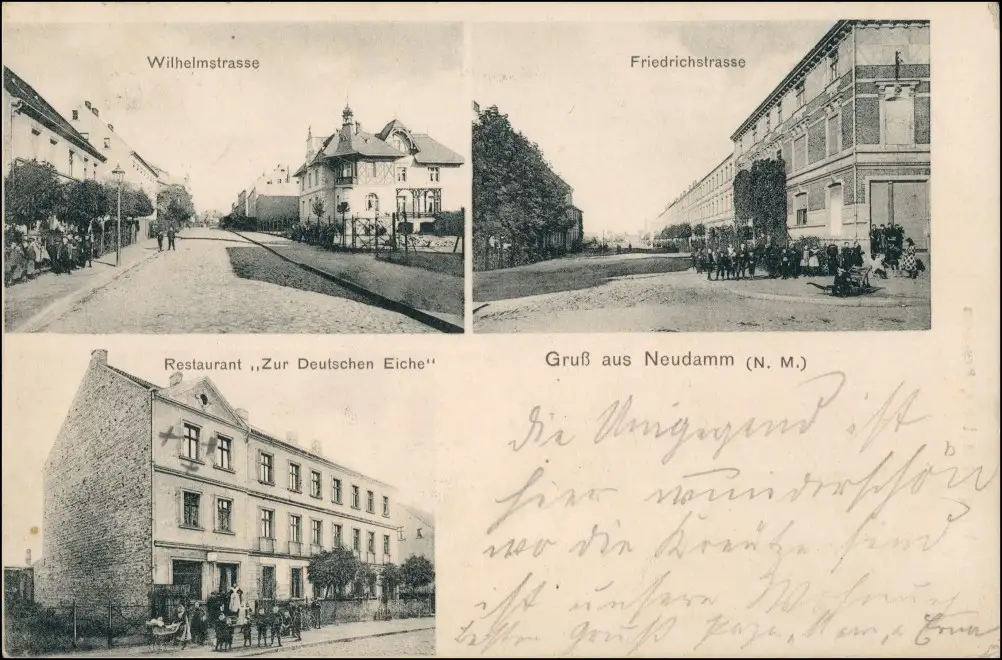 Wilhelmstrasse
Friedrichstrasse
Restaurant „Zur Deutschen Eiche"
Gruß aus Neudamm (N. M.)
die Umgegend ist
hier wunderschön
wo die Kreutze sind
ist unsere Wohnung
Besten Gruß Papa, Mama, u Erna